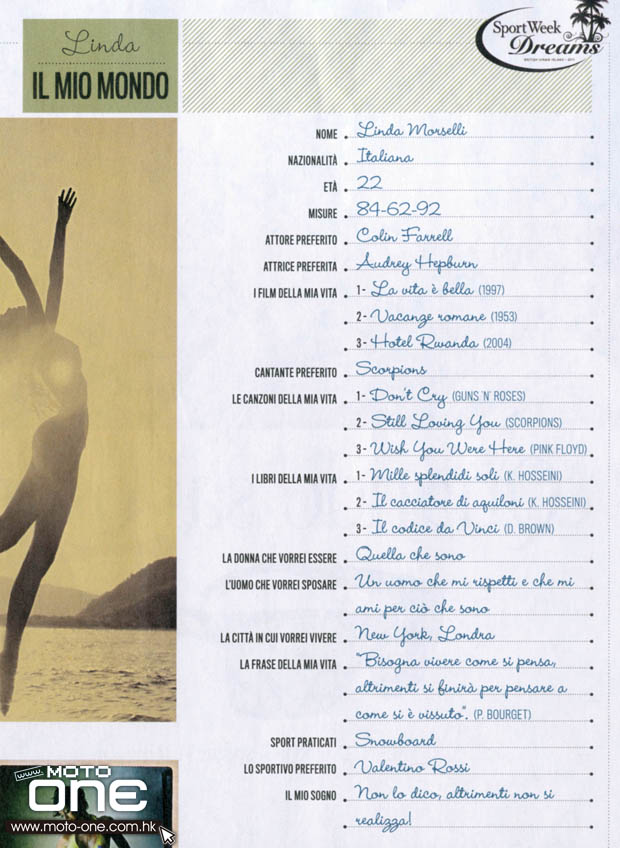 Linda
IL MIO MONDO
SportWeek
Dreams
BRITISH VIRGIN ISLAND - 2011
NOME Linda Morselli
NAZIONALITÀ Italiana
ETÀ 22
MISURE 84-62-92
ATTORE PREFERITO Colin Farrell
ATTRICE PREFERITA Audrey Hepburn
I FILM DELLA MIA VITA 1- La vita è bella (1997)
2- Vacanze romane (1953)
3- Hotel Rwanda (2004)
CANTANTE PREFERITO Scorpions
LE CANZONI DELLA MIA VITA 1- Don't Cry (GUNS 'N' ROSES)
2- Still Loving You (SCORPIONS)
3- Wish You Were Here (PINK FLOYD)
I LIBRI DELLA MIA VITA 1- Mille splendidi soli (K. HOSSEINI)
2- Il cacciatore di aquiloni (K. HOSSEINI)
3- Il codice da Vinci (D. BROWN)
LA DONNA CHE VORREI ESSERE Quella che sono
L'UOMO CHE VORREI SPOSARE Un uomo che mi rispetti e che mi
ami per ciò che sono
LA CITTÀ IN CUI VORREI VIVERE New York, Londra
LA FRASE DELLA MIA VITA "Bisogna vivere come si pensa,
altrimenti si finirà per pensare a
come si è vissuto". (P. BOURGET)
SPORT PRATICATI Snowboard
LO SPORTIVO PREFERITO Valentino Rossi
IL MIO SOGNO Non lo dico, altrimenti non si
realizza!
www. MOTO
ONE
www.moto-one.com.hk